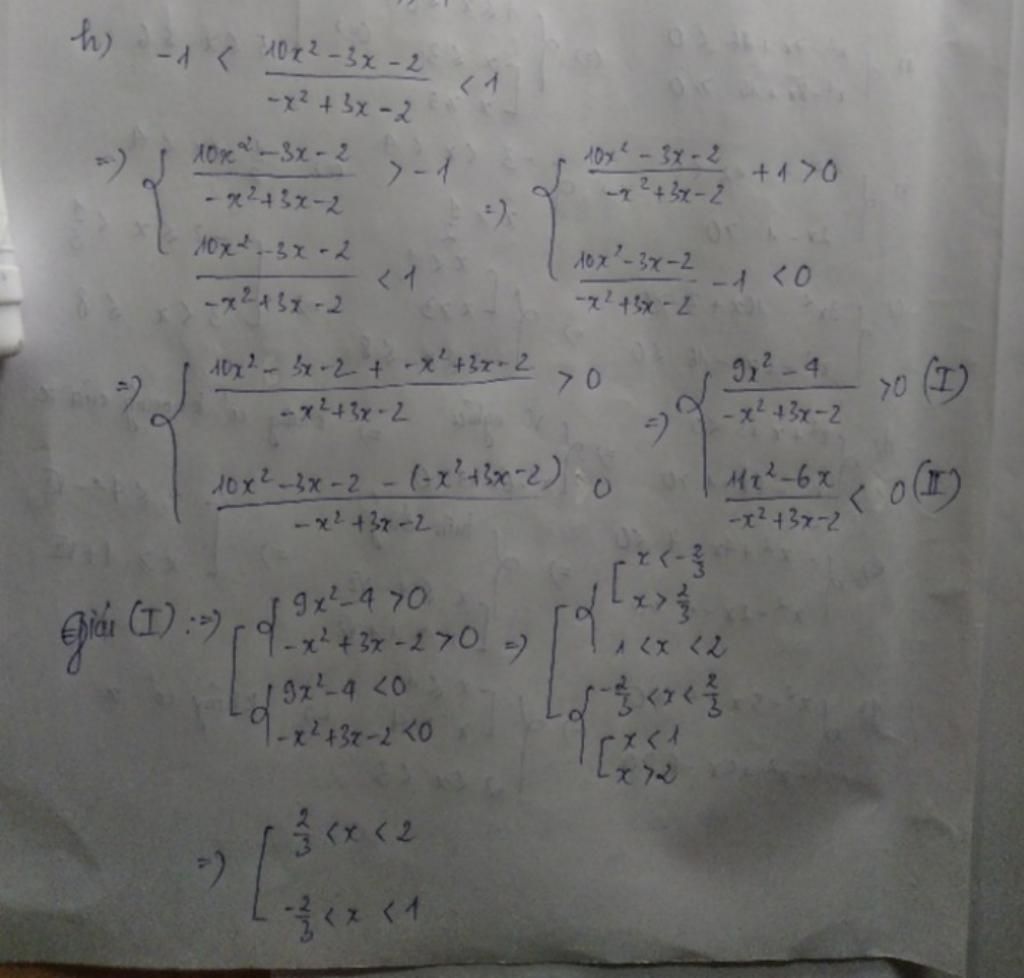 h) -1 < \frac{10x^2 - 3x - 2}{-x^2 + 3x - 2} < 1
=> { \frac{10x^2 - 3x - 2}{-x^2 + 3x - 2} > -1 ; \frac{10x^2 - 3x - 2}{-x^2 + 3x - 2} < 1 => { \frac{10x^2 - 3x - 2}{-x^2 + 3x - 2} + 1 > 0 ; \frac{10x^2 - 3x - 2}{-x^2 + 3x - 2} - 1 < 0
=> { \frac{10x^2 - 3x - 2 + -x^2 + 3x - 2}{-x^2 + 3x - 2} > 0 ; \frac{10x^2 - 3x - 2 - (-x^2 + 3x - 2)}{-x^2 + 3x - 2} 0 => { \frac{9x^2 - 4}{-x^2 + 3x - 2} > 0 (I) ; \frac{11x^2 - 6x}{-x^2 + 3x - 2} < 0 (II)
Giải (I) : => [ { 9x^2 - 4 > 0 ; -x^2 + 3x - 2 > 0 ; { 9x^2 - 4 < 0 ; -x^2 + 3x - 2 < 0 => [ { [ x < -\frac{2}{3} ; x > \frac{2}{3} ; 1 < x < 2 ; { -\frac{2}{3} < x < \frac{2}{3} ; [ x < 1 ; x > 2
=> [ \frac{2}{3} < x < 2 ; -\frac{2}{3} < x < 1